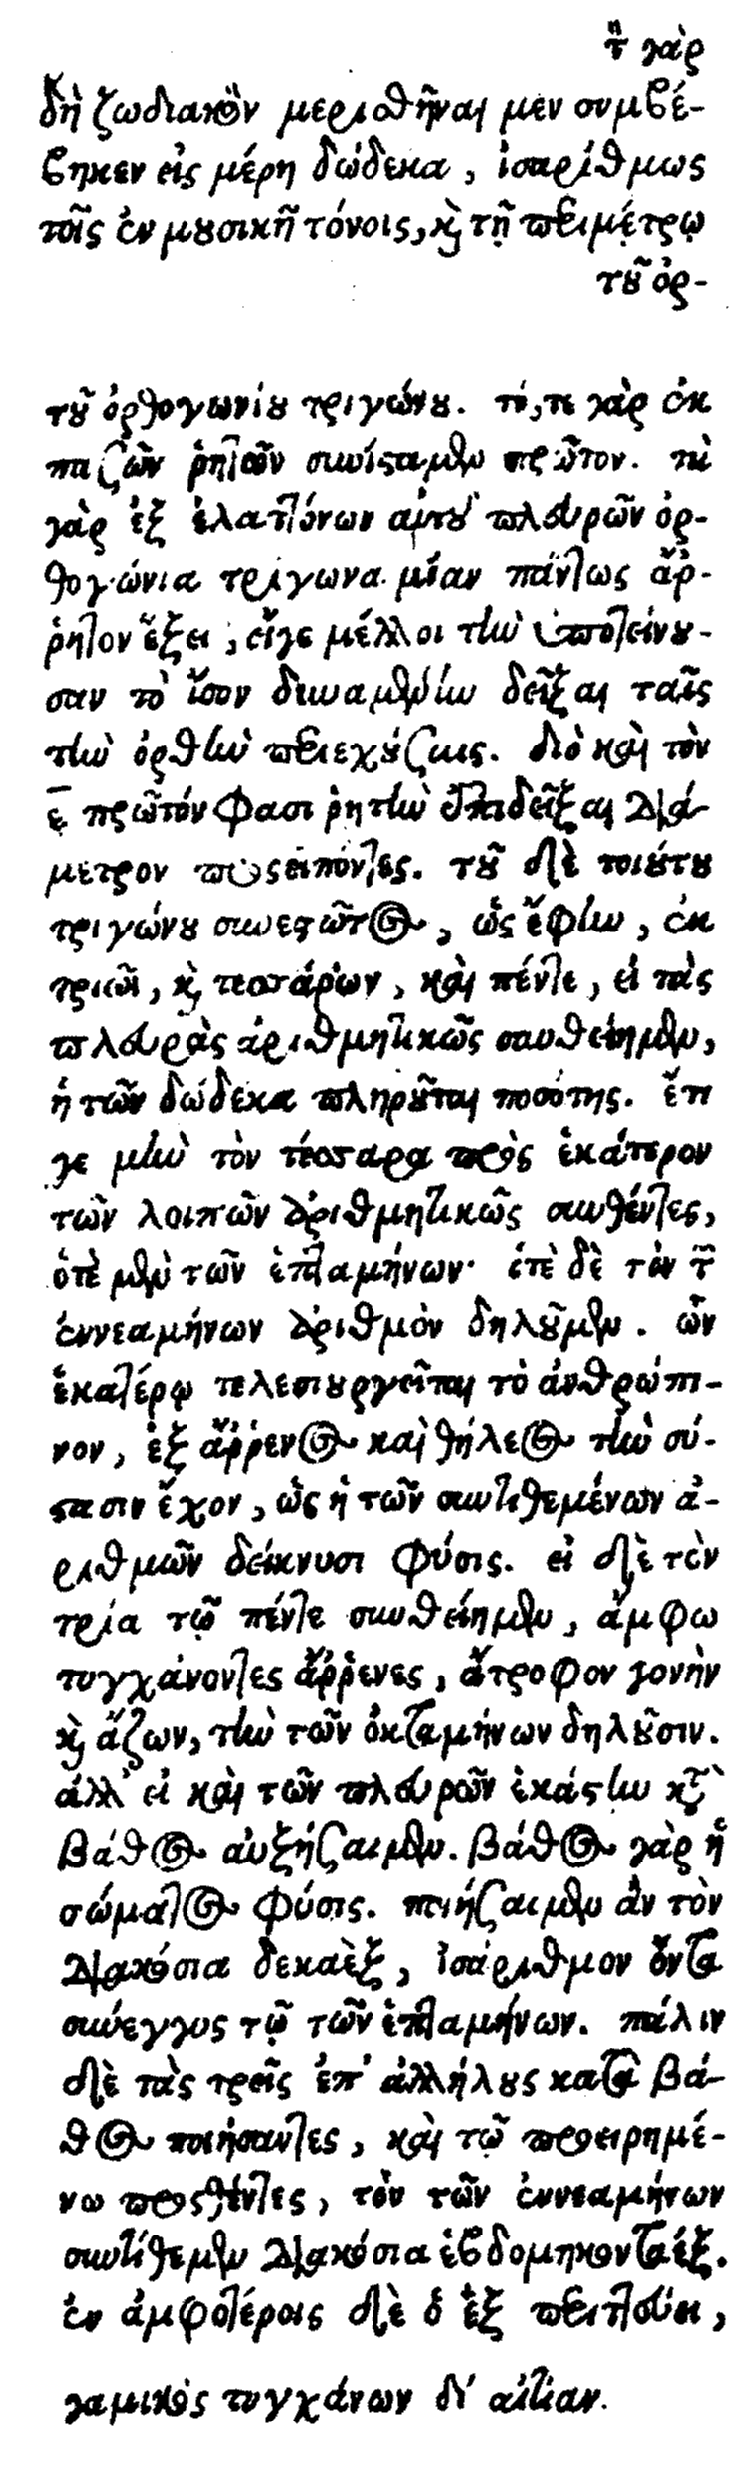 τὸν γὰρ
δὴ ζωδιακὸν μερισθῆναι μὲν συμβέ-
βηκεν εἰς μέρη δώδεκα, ἰσαρίθμως
τοῖς ἐν μουσικῇ τόνοις, καὶ τῇ περιμέτρῳ
τοῦ ὀρ-
τοῦ ὀρθογωνίου τριγώνου. τό, τε γὰρ ἐκ
πασῶν ῥητῶν συνίσταμεν πρῶτον. τὰ
γὰρ ἐξ ἐλαττόνων αὐτοῦ πλευρῶν ὀρ-
θογώνια τρίγωνα μίαν πάντως ἄρ-
ῥητον ἕξει, εἴγε μέλλοι τὴν ὑποτείνου-
σαν τὸ ἴσον δυναμένην δεῖξαι ταῖς
τὴν ὀρθὴν περιεχούσαις. διὸ καὶ τὸν
ε πρῶτόν φασι ῥητὴν ἐπιδεῖξαι διά-
μετρον προσειπόντες. τοῦ δὲ τοιούτου
τριγώνου συνεστῶτος, ὡς ἔφην, ἐκ
τριῶν, καὶ τεσσάρων, καὶ πέντε, εἰ τὰς
πλευρὰς ἀριθμητικῶς συνθείημεν,
ἡ τῶν δώδεκα πληροῦται ποσότης. ἔτι
γε μὴν τὸν τέσσαρα πρὸς ἑκάτερον
τῶν λοιπῶν ἀριθμητικῶς συνθέντες,
ὁτὲ μὲν τῶν ἑπταμήνων· ὁτὲ δὲ τὸν τῶν
ἐννεαμήνων ἀριθμὸν δηλοῦμεν. ὧν
ἑκατέρῳ τελεσιουργεῖται τὸ ἀνθρώπι-
νον, ἐξ ἄῤῥενος καὶ θήλεος τὴν σύ-
στασιν ἔχον, ὡς ἡ τῶν συντιθεμένων ἀ-
ριθμῶν δείκνυσι φύσις. εἰ δὲ τὸν
τρία τῷ πέντε συνθείημεν, ἄμφω
τυγχάνοντες ἄῤῥενες, ἄτροφον γονὴν
καὶ ἄζων, τὴν τῶν ὀκταμήνων δηλοῦσιν.
ἀλλ' εἰ καὶ τῶν πλευρῶν ἑκάστην κατὰ
βάθος αὐξήσαιμεν. βάθος γὰρ ἡ
σώματος φύσις. ποιήσαιμεν ἂν τὸν
διακόσια δεκαὲξ, ἰσάριθμον ὄντα
σύνεγγυς τῷ τῶν ἑπταμήνων. πάλιν
δὲ τὰς τρεῖς ἐπ' ἀλλήλους κατὰ βά-
θος ποιήσαντες, καὶ τῷ προειρημέ-
νῳ προσθέντες, τὸν τῶν ἐννεαμήνων
συντίθεμεν διακόσια ἑβδομηκονταέξ.
ἐν ἀμφοτέροις δὲ ὁ ἓξ περιπλέκει,
γαμικὸς τυγχάνων δι' αἰτίαν.